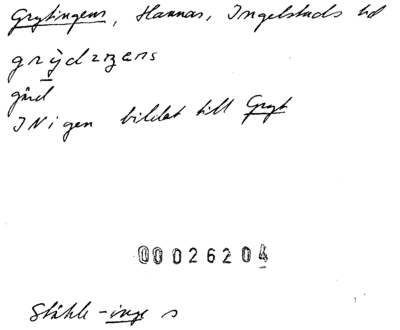 Grytingens, Hannas, Ingelstads hd
grỳdzıŋens
gård
INigen bildat till Gryt
00026204
Ståhle -inge s